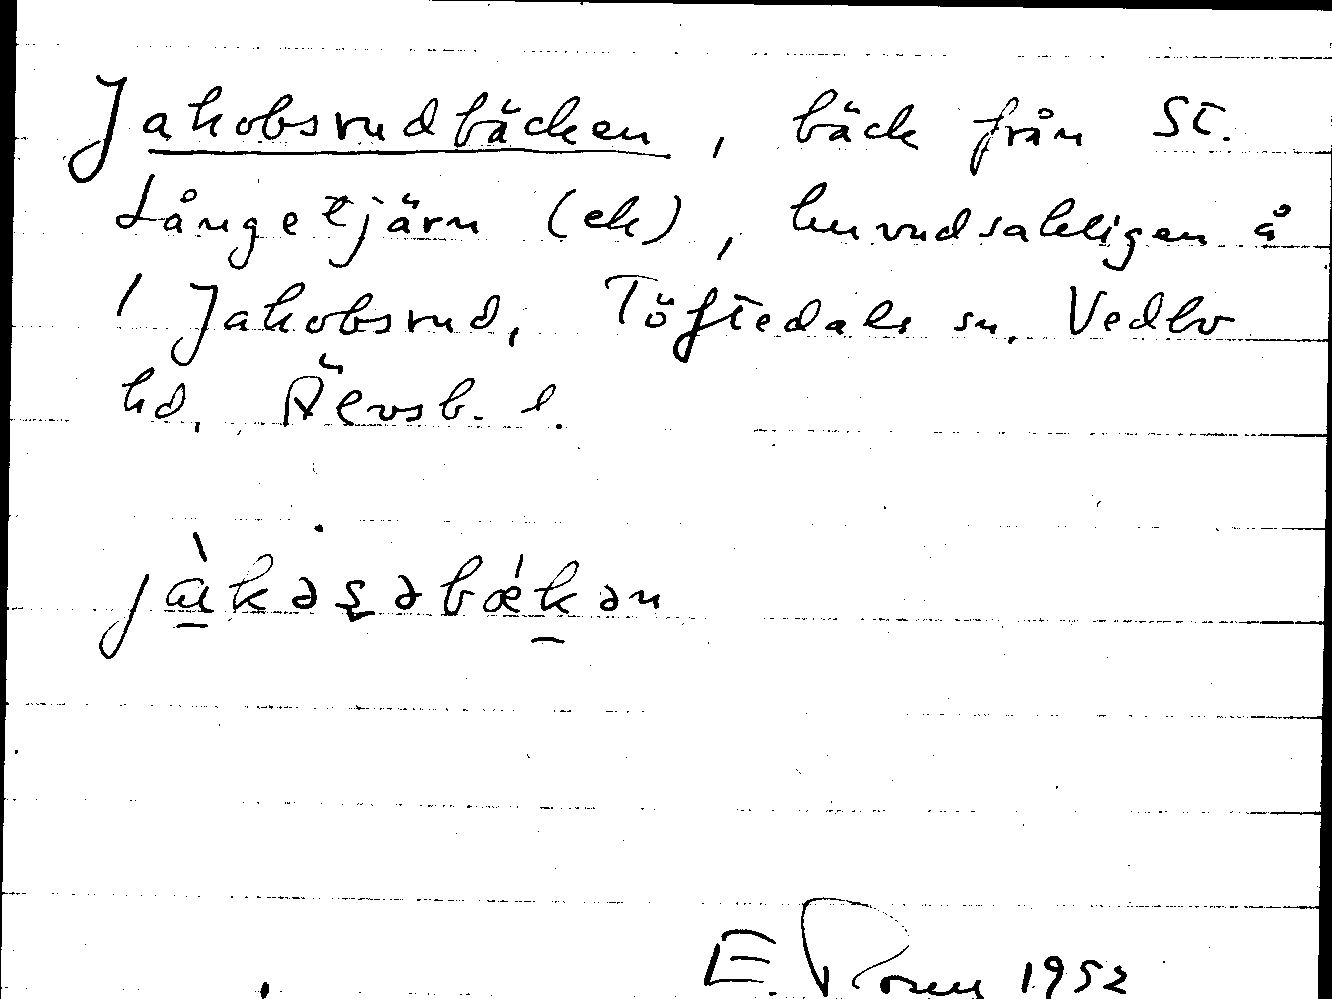 Jakobsrudbäcken, bäck från St.
Långetjärn (ek), huvudsakligen å
1 Jakobsrud, Töftedals sn. Vedbo
hd. Älvsb. l.
jàkəşəbǽkən
E. 1952